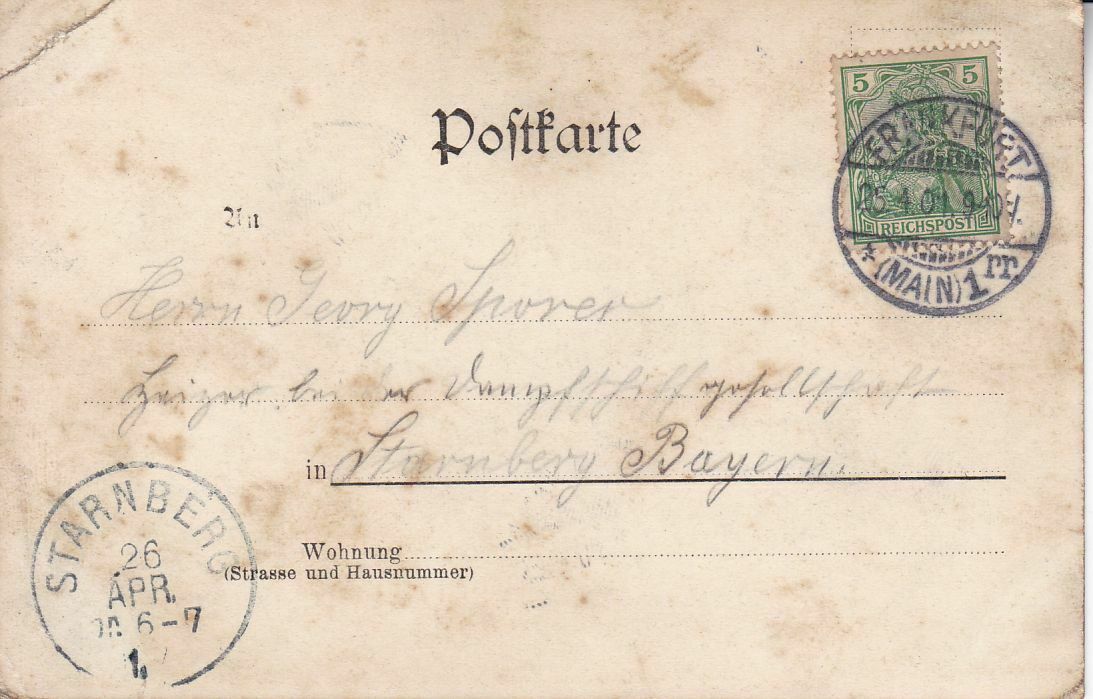 5 5
REICHSPOST
FRANKFURT
25.4.01.
*(MAIN)1rr
Postkarte
An
Herrn Georg Sporer
Heizer bei der Dampfschiffgesellschaft
in Starnberg Bayern.
Wohnung
(Strasse und Hausnummer)
STARNBERG
26
APR.
6-7